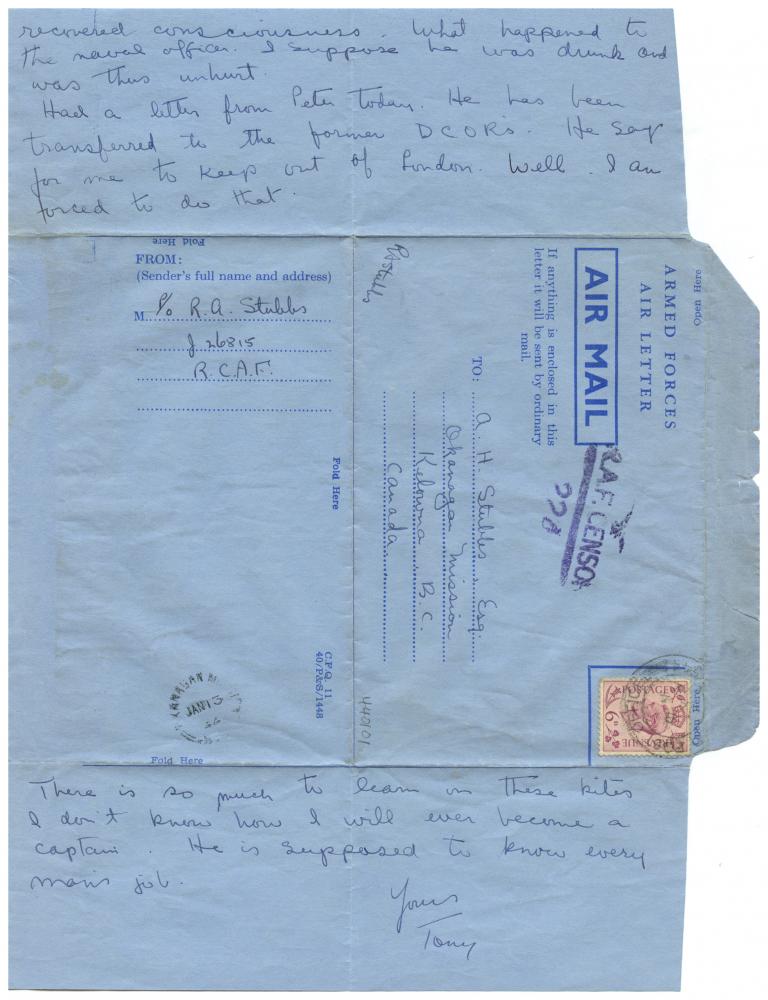 recovered consciousness. What happened to
the naval officer. I suppose he was drunk and
was thus unhurt.
Had a letter from Peter today. He has been
transferred to the former DCOR's. He say
for me to keep out of London. Well. I am
forced to do that.
Fold Here
FROM:
(Sender's full name and address)
M P/O R.A. Stubbs
J 26815
R.C.A.F.
Fold Here
C.F.Q. 11
40/P&S/1448
JAN 13
44
Fold Here
RAStubbs
Open Here
ARMED FORCES
AIR LETTER
AIR MAIL
If anything is enclosed in this
letter it will be sent by ordinary
mail.
R.A.F. CENSO
220
TO:
A. H. Stubbs, Esq.
Okanagan Mission
Kelowna B.C.
Canada
440101
Open Here
POSTAGE
6D
REVENUE
There is so much to learn on these kites
I don't know how I will ever become a
captain. He is supposed to know every
man's job.
Yours
Tony